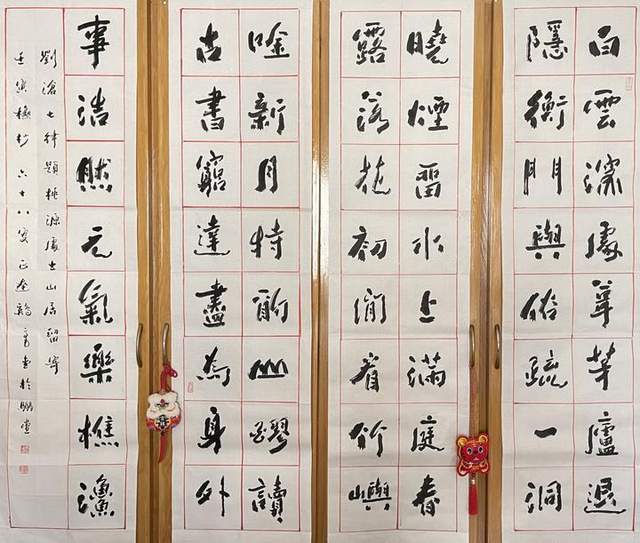 白雲深處葺茅廬退
隱衡門與俗疏一洞
曉煙畱水上滿庭春
露落花初閒看竹嶼
唫新月特酌山醪讀
古書窮達盡為身外
事浩然元氣樂樵漁
劉滄七律題桃源處士山居留寄
壬寅 杪六十八叟 書於